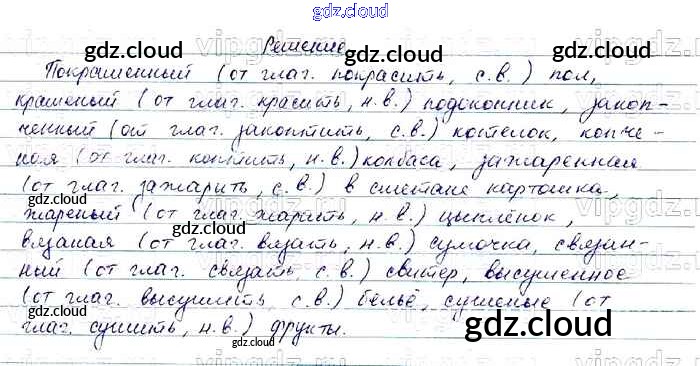 gdz.cloud
Решение
Покрашенный (от глаг. покрасить, с.в.) пол,
крашеный (от глаг. красить, н.в.) подоконник, закоп-
ченный (от глаг. закоптить, с.в.) котелок, копче-
ная (от глаг. коптить, н.в.) колбаса, зажаренная
(от глаг. зажарить, с.в.) в сметане картошка,
жареный (от глаг. жарить, н.в.) цыплёнок,
вязаная (от глаг. вязать, н.в.) сумочка, связан-
ный (от глаг. связать, с.в.) свитер, высушенное
(от глаг. высушить, с.в.) бельё, сушеные (от
глаг. сушить, н.в.) фрукты.
gdz.cloud
gdz.cloud
gdz.cloud
gdz.cloud
gdz.cloud
gdz.cloud
gdz.cloud
gdz.cloud